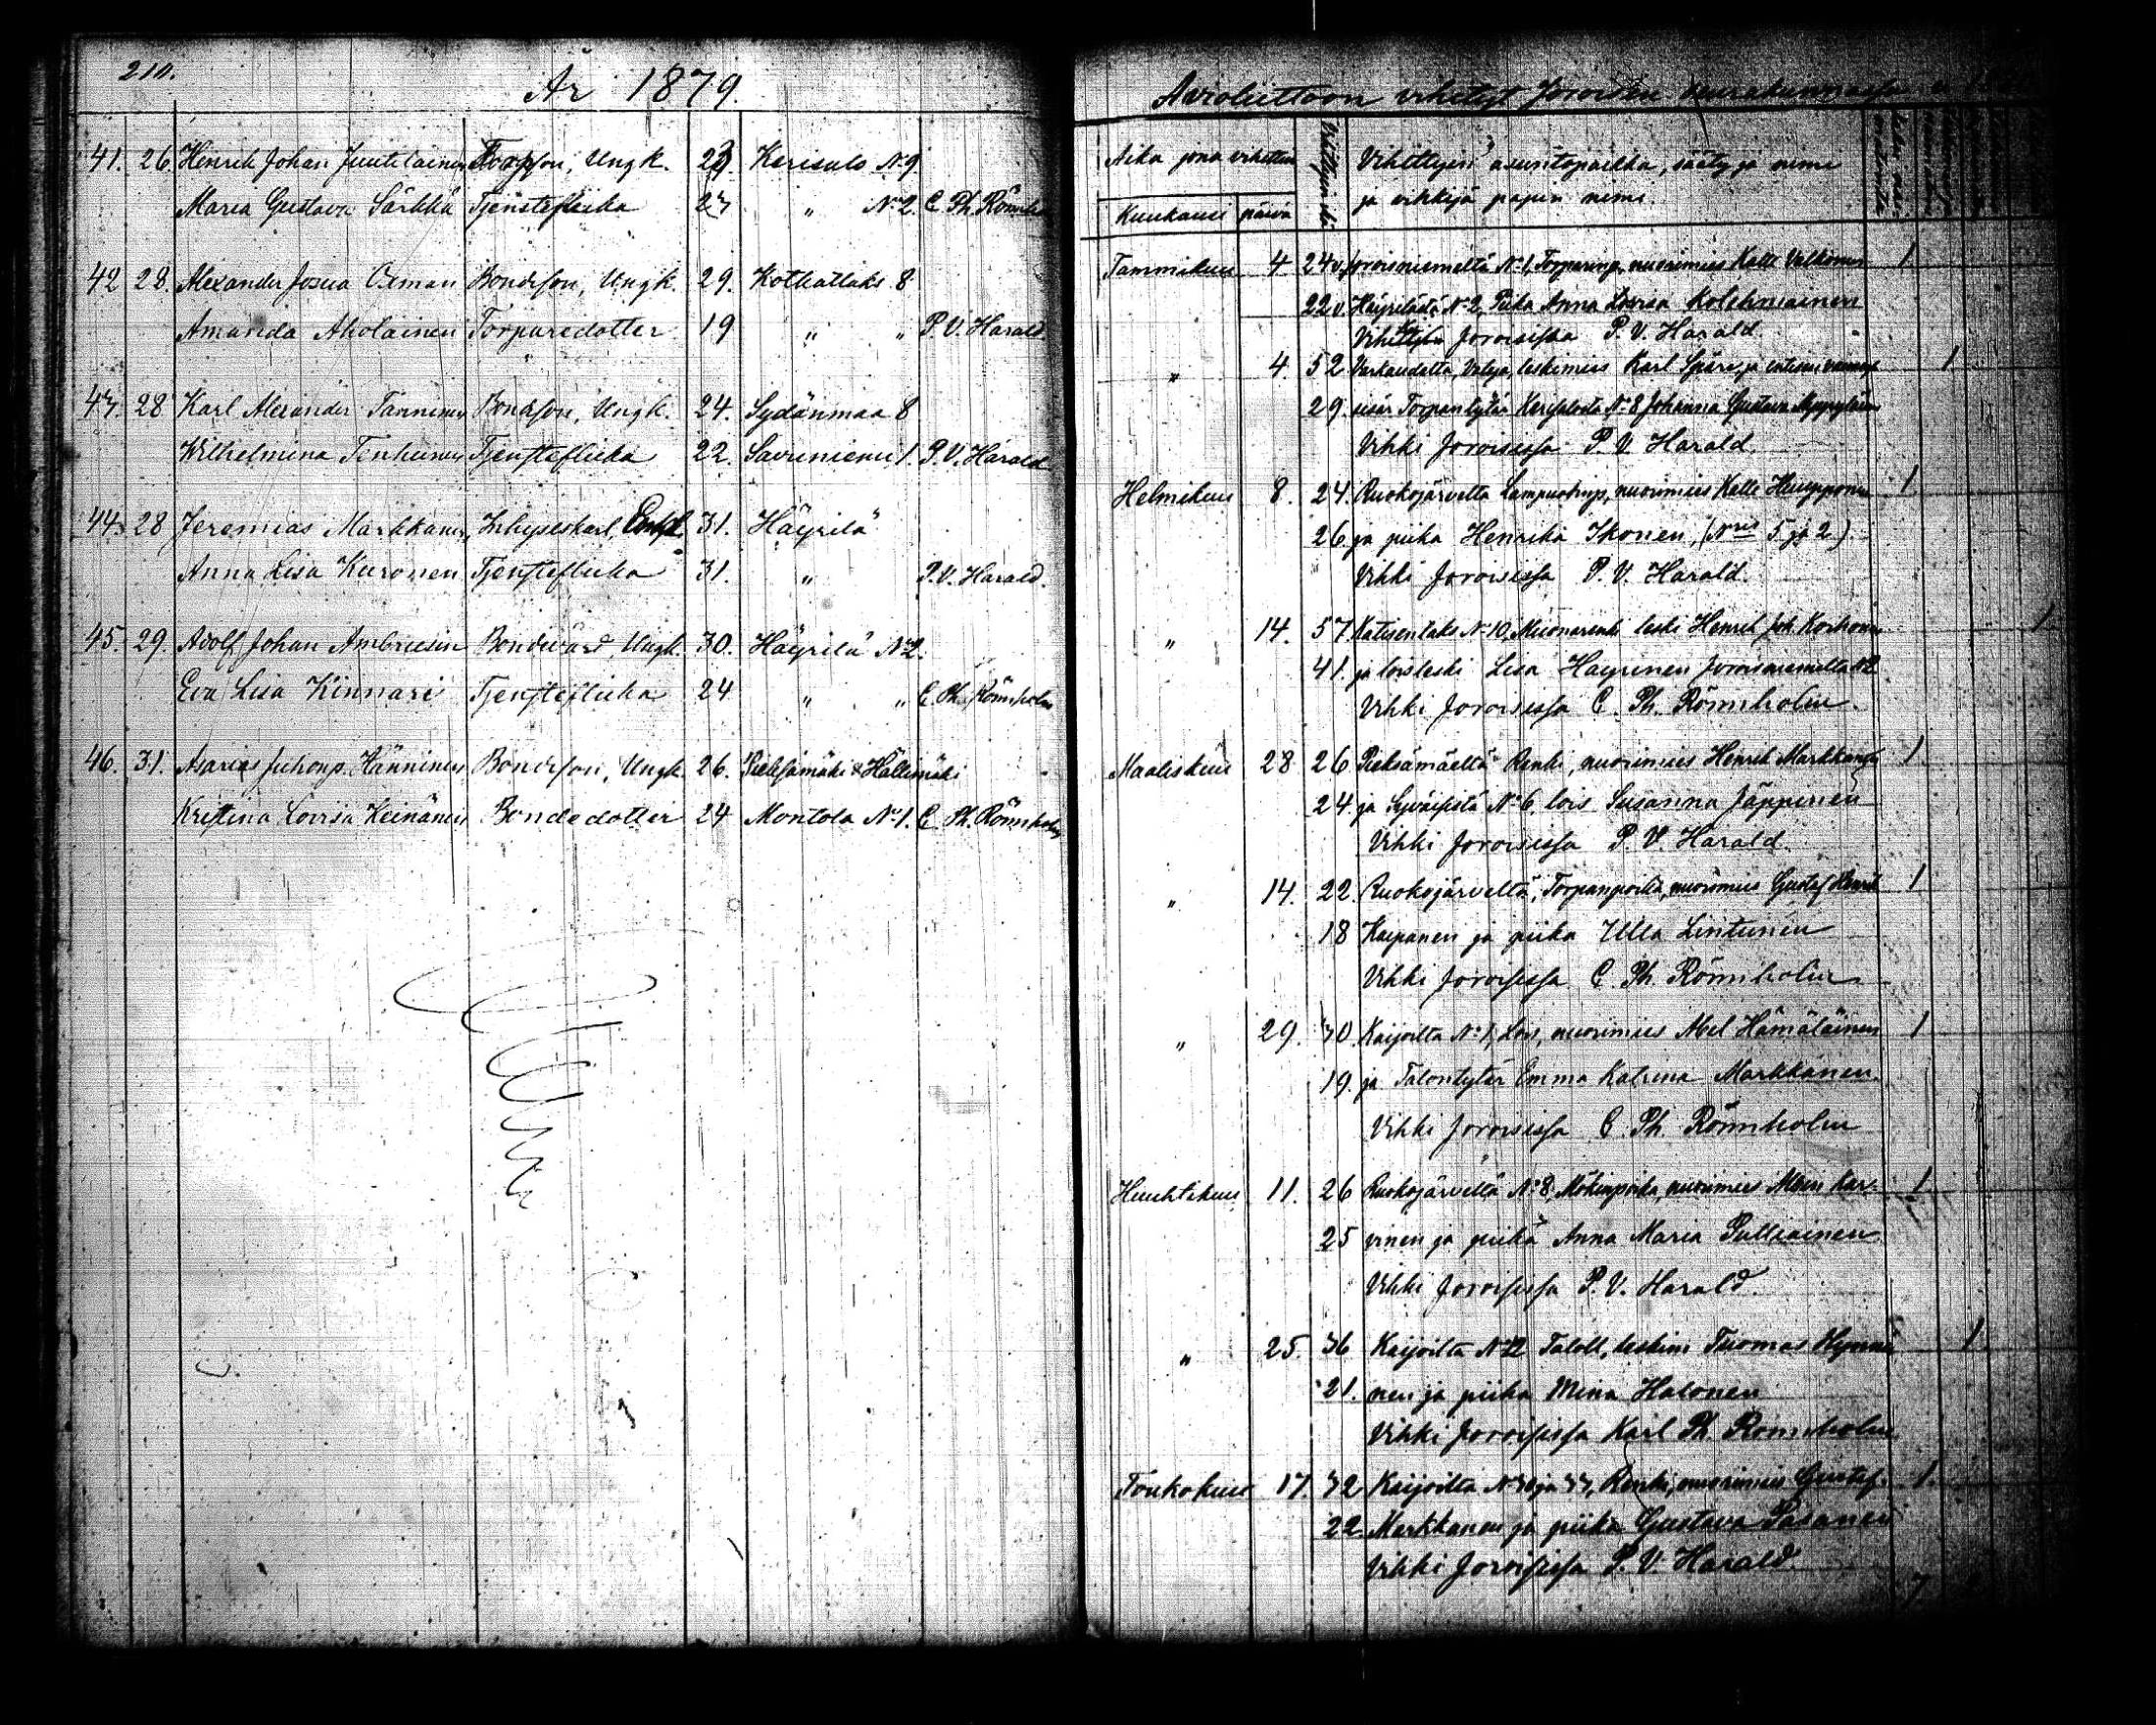 210.
År 1879.
41. 26. Henrik Johan Juutilainen Torpson, Ungk. 23. Kerisalo N:o 9.
Maria Gustava Särkkä Tjensteflicka 23 " N:o 2. C. Ph. Römnholm
42 28. Alexander Josua Osman Bondeson, Ungk. 29. Kotkatlaks 8
Amanda Aholainen Torparedotter 19 " " P. V. Harald.
43. 28 Karl Alexander Tanninen Bondeson, Ungk. 24. Sydänmaa 8
Wilhelmina Tenhunen Tjensteflicka 22. Savuniemi 1. P. V. Harald
44. 28 Jeremias Markkanen, Inhyseskarl, Enkl. 31. Häyrilä
Anna Lisa Kuronen Tjensteflicka 31. " P. V. Harald.
45. 29. Adolf Johan Ambrusin Bondevärd, Ungk. 30. Häyrilä N:o 2.
Eva Lisa Kinnari Tjensteflicka 24 " " C. Ph. Römnholm
46. 31. Asarias Juhonp. Hänninen Bondeson, Ungk. 26. Pieksämäki & Hällimäki
Kristina Lovisa Keinänen Bondedotter 24 Montola N:o 1. C. Ph. Römnholm
Avioliittoon vihityt Joroisten seurakunnassa
Aika jona vihittiin
Vihittyin asuntopaikka, sääty ja nimi
ja vihkijä papin nimi.
Kuukausi päivä
Tammikuu 4 24 v. Joroisniemeltä N:o 1, Torparinp. nuorimies Kalle Valkonen 1
22 v. Häyrilästä N:o 2, Piika Anna Lovisa Kolehmainen
Joroisissa P. V. Harald.
" 4. 52 Varkaudelta, leskimies Karl Spåre, ja 1
29. sisar Torpantytär Kerisalosta N:o 8 Johanna Gustava
Vihki Joroisissa P. V. Harald.
Helmikuu 8. 24. Ruokojärveltä nuorimies Kalle 1
26. ja piika Henrika Ikonen, (N:ris 5 ja 2).
Vihki Joroisissa P. V. Harald.
" 14. 57. Katisenlaks N:o 10, Muonarenki leski Henrik Joh. Korhonen 1
41. ja loisleski Lisa Häyrinen Joroisniemeltä N:o 2
Vihki Joroisissa C. Ph. Römnholm.
Maaliskuu 28 26 Pieksämäeltä Renki, nuorimies Henrik Markkanen 1
24 ja Syväisistä N:o 6 lois Susanna Jäppinen
Vihki Joroisissa P. V. Harald.
" 14. 22. Ruokojärveltä, Torpanpoika, nuorimies Gustaf Henrik 1
18 Kaipanen ja piika Ulla Lintunen
Vihki Joroisissa C. Ph. Römnholm
" 29. 30. Kaijoilta N:o 1, Lois, nuorimies Abel Hämäläinen 1
19. ja Talontytär Emma Katrina Markkanen.
Vihki Joroisissa C. Ph. Römnholm
Huuhtikuu 11. 26 Ruokojärveltä N:o 8, Mökinpoika, nuorimies Kar- 1
25 vinen ja piika Anna Maria Pulliainen
Vihki Joroisissa P. V. Harald.
" 25. 36 Kaijoilta N:o 12 Taloll. leskim. Tuomas Hynni 1
21. nen ja piika Mina Halonen
Vihki Joroisissa Karl Ph. Römnholm
Toukokuu 17. 32 Kaijoilta N:o 30 ja 33, Renki, nuorimies Gustaf 1
22. Markkanen ja piika Gustava Pasanen
Vihki Joroisissa P. V. Harald
7.